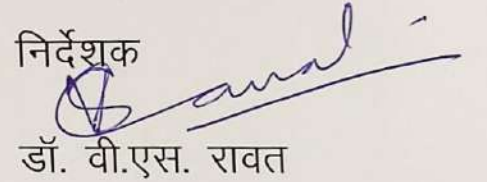 निर्देशक
डॉ. वी.एस. रावत